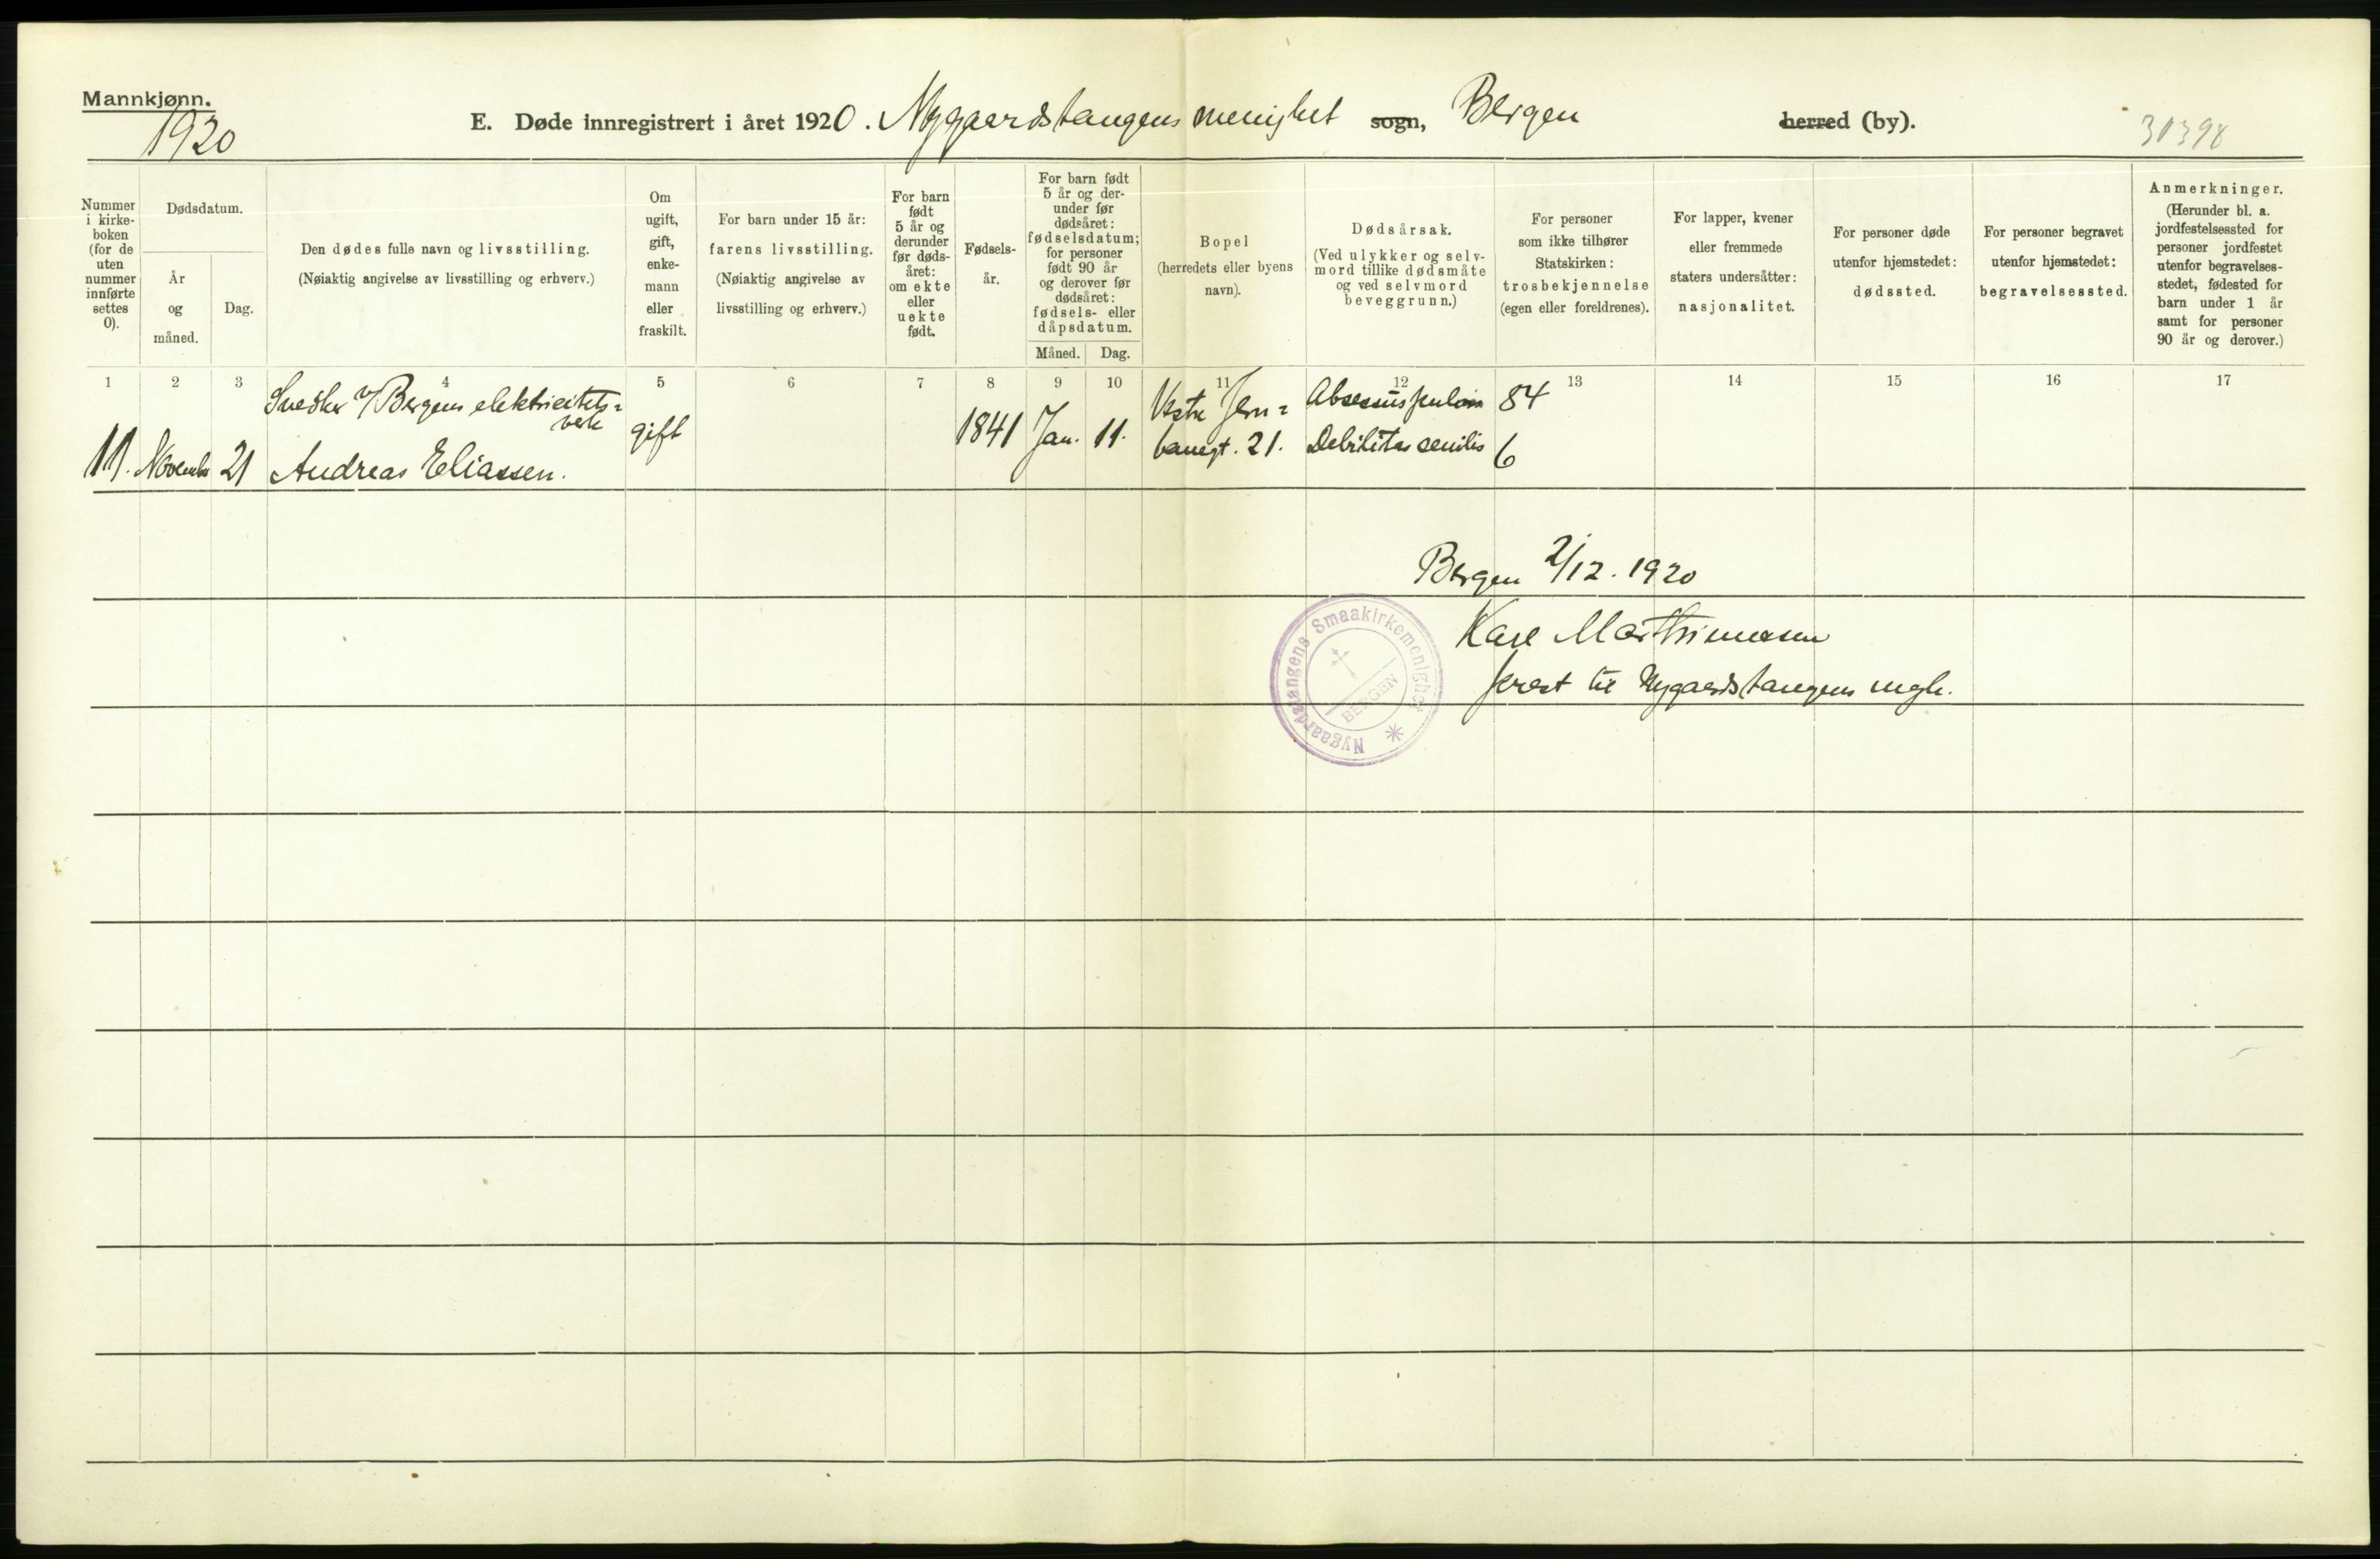 Mannkjønn.
1920
E. Døde innregistrert i året 1920. Nygaardstangens menighet sogn, Bergen herred (by).
31398
Nummer i kirke- boken (for de uten nummer innførte settes 0).
Dødsdatum.
År og måned.
Dag.
Den dødes fulle navn og livsstilling.
(Nøiaktig angivelse av livsstilling og erhverv.)
Om ugift, gift, enke- mann eller fraskilt.
For barn under 15 år:
farens livsstilling.
(Nøiaktig angivelse av livsstilling og erhverv.)
For barn født 5 år og derunder før døds- året: om ekte eller uekte født.
Fødsels- år.
For barn født 5 år og der- under før dødsåret: fødselsdatum; for personer født 90 år og derover før dødsåret: fødsels- eller dåpsdatum.
Måned. Dag.
Bopel
(herredets eller byens navn).
Dødsårsak.
(Ved ulykker og selv- mord tillike dødsmåte og ved selvmord beveggrunn.)
For personer som ikke tilhører Statskirken: trosbekjennelse (egen eller foreldrenes).
For lapper, kvener eller fremmede staters undersåtter: nasjonalitet.
For personer døde utenfor hjemstedet: dødssted.
For personer begravet utenfor hjemstedet: begravelsessted.
Anmerkninger.
(Herunder bl. a. jordfestelsessted for personer jordfestet utenfor begravelses- stedet, fødested for barn under 1 år samt for personer 90 år og derover.)
1 2 3 4 5 6 7 8 9 10 11 12 13 14 15 16 17
Snedker v/ Bergens elektricitets=
verk
11. November 21 Andreas Eliassen.
gift
1841 Jan. 11.
Vestre Jern=
banegt. 21.
Absessus pulm 84
Debilitas senilis 6
Bergen 2/12. 1920
Karl Marthinussen
prest til Nygaardstangens mgh.
Nygaardstangens Smaakirkemenighet
BERGEN